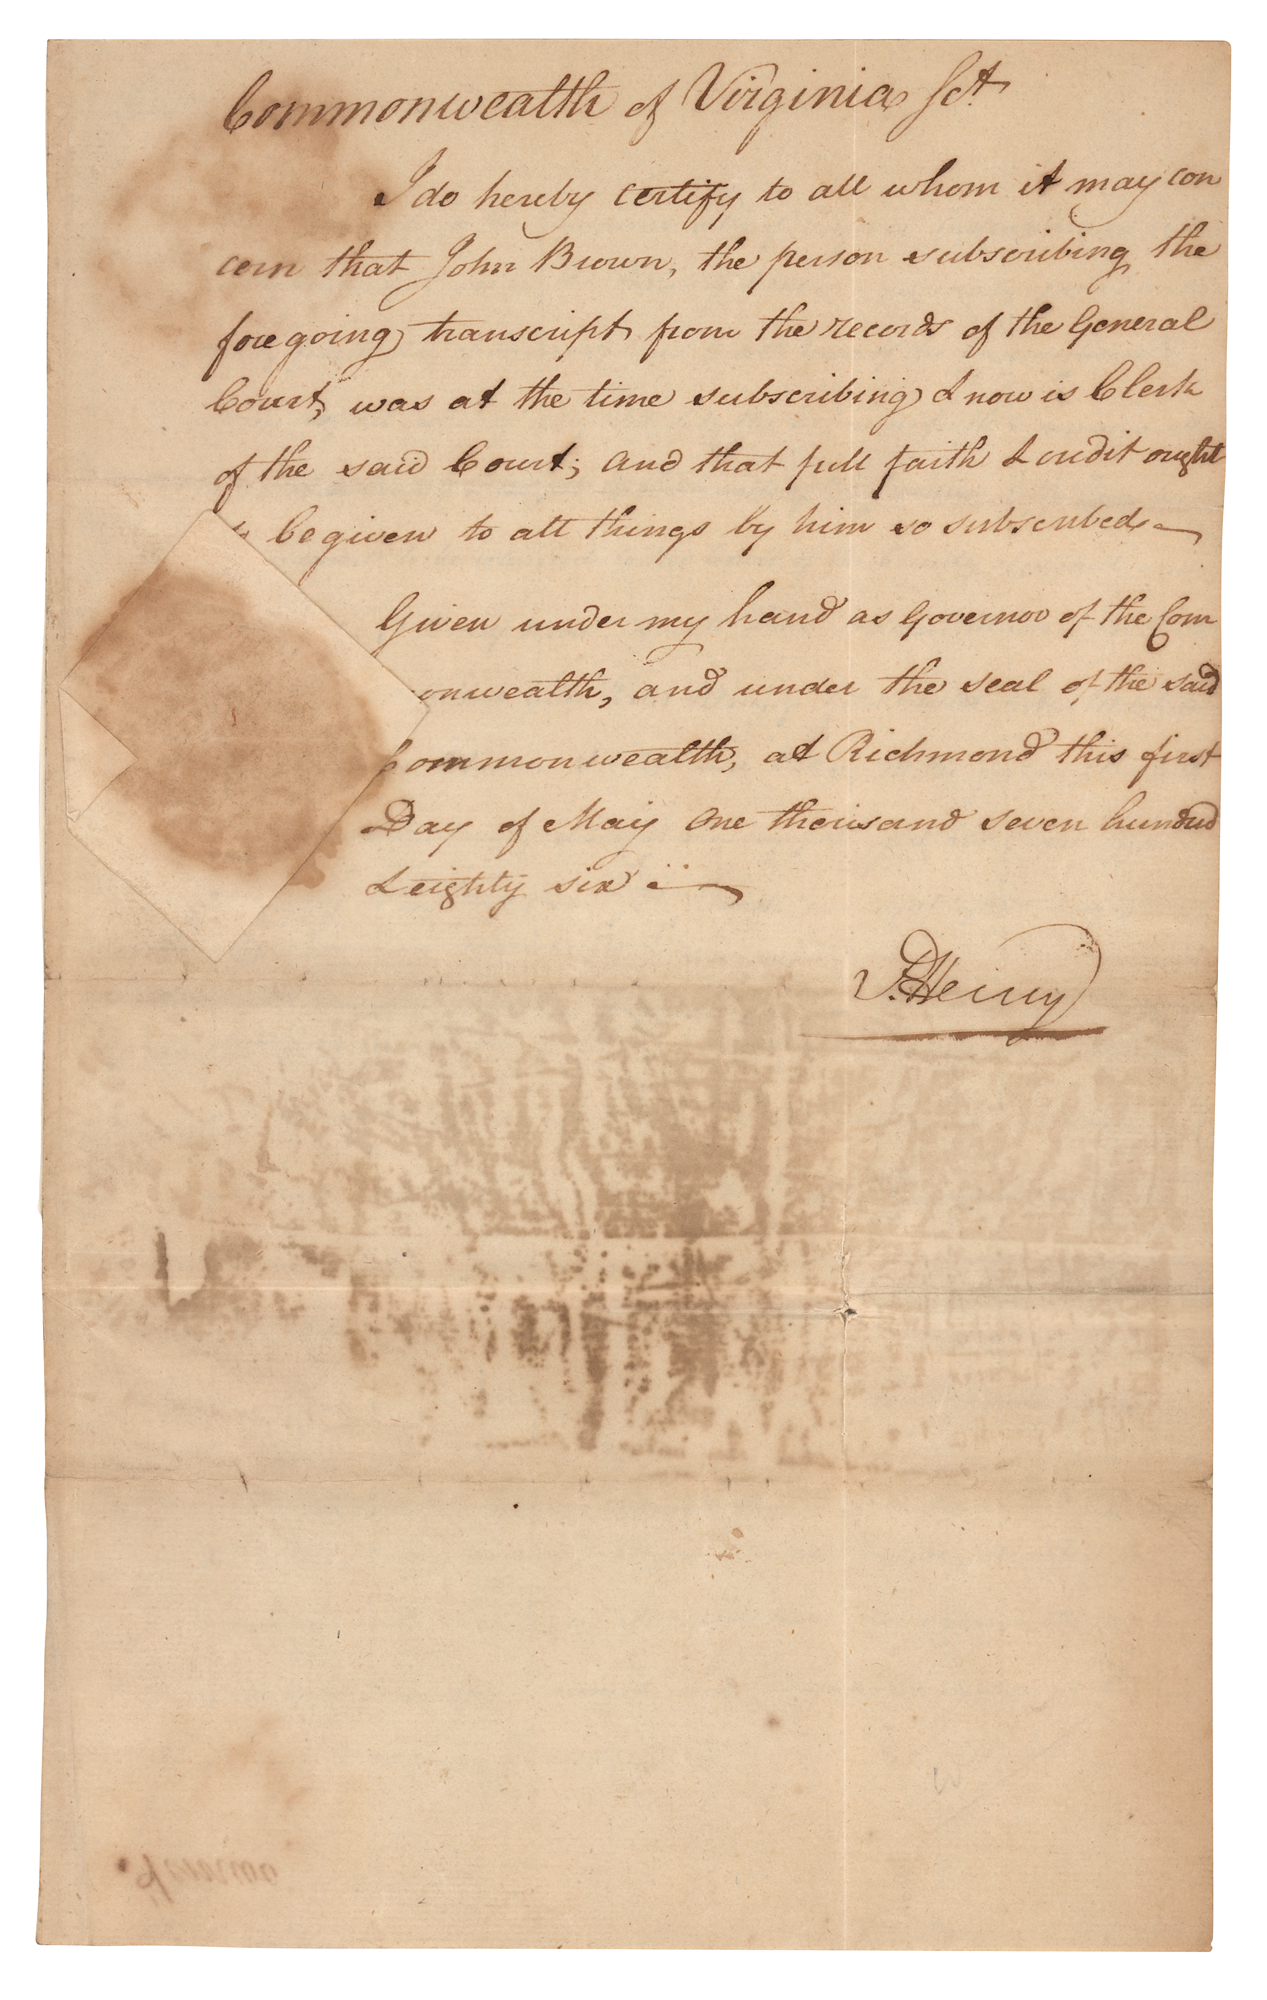 Commonwealth of Virginia Sct.
I do hereby certify to all whom it may con
cern that John Brown, the person subscribing the
foregoing transcript from the records of the General
Court, was at the time subscribing & now is Clerk
of the said Court; and that full faith & credit ought
be given to all things by him so subscribed.
Given under my hand as Governor of the Com
onwealth, and under the seal of the said
Commonwealth, at Richmond this first
Day of May One thousand seven hundred
& eighty six
P. Henry